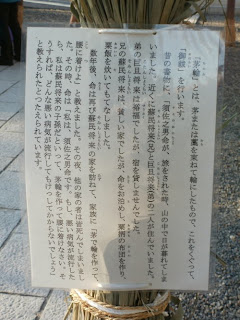 「茅輪」とは、茅または藁を束ねて輪にしたもので、これをくぐって、
「御祓」を行います。
昔の書物に、須佐之男命が、旅をされた時、山の中で日が暮れてしま
いました。近くに蘇民将来(兄)と巨旦将来(弟)の二人が住んでいました。
弟の巨旦将来は、裕福でしたが、宿を貸しませんでした。
兄の蘇民将来は、貧しい家でしたが、命をお泊めし、粟殻の布団を作り、
粟飯を炊いてもてなしました。
数年後、命は再び蘇民将来の家を訪ねて、家族に「茅で輪を作って
腰に着けよ」と教えました。その夜、他の家の者は皆死んでしまいまし
た。その時、命は「私は、須佐之男命です。もし、悪い病気が流行した
ら、私は蘇民将来の子孫だといって、茅輪を作って腰に着けなさい。そ
うすれば、どんな悪い病気が流行してもけっしてかからないでしょう」
と教えられたとつたえられています。